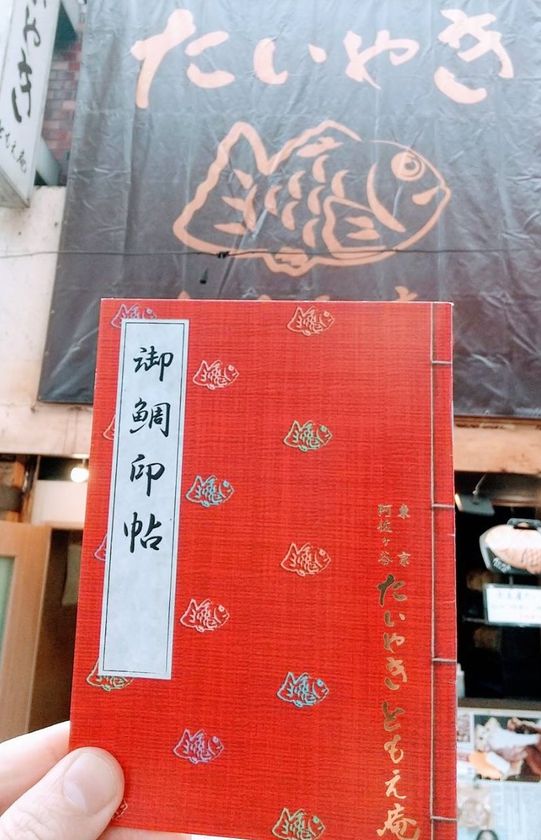 たいやき
ともえ庵
御鯛印帖
東京
阿佐ヶ谷
たいやき ともえ庵